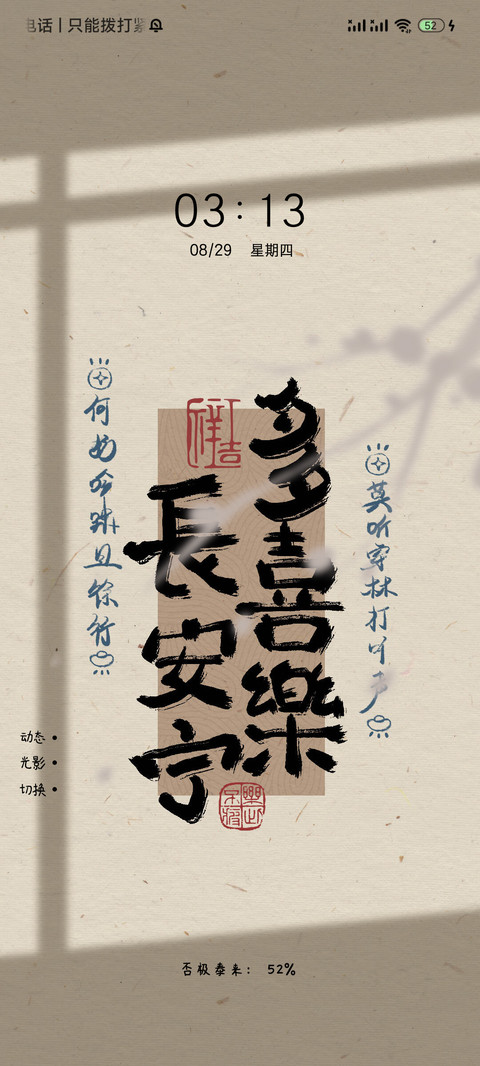 电话 | 只能拨打紧
52
03:13
08/29 星期四
多喜樂
長安宁
莫听穿林打叶声
何妨吟啸且徐行
动态
光影
切换
否极泰来: 52%